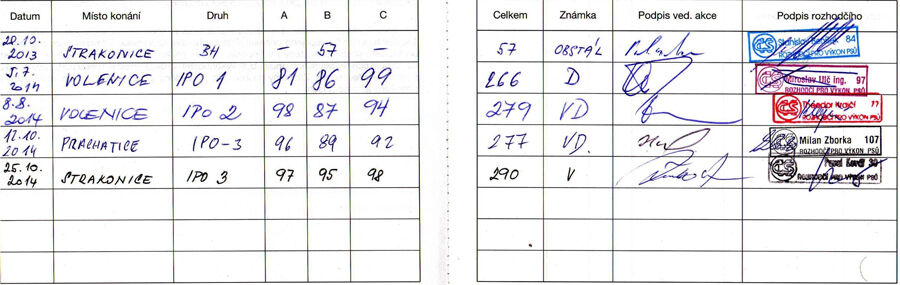 Datum Místo konání Druh A B C Celkem Známka Podpis ved. akce Podpis rozhodčího
20.10. 2013 STRAKONICE BH – 57 – 57 OBSTÁL 84
5.7. 2014 VOLENICE IPO 1 81 86 99 266 D Miroslav Ulč ing. 97
ROZHODČÍ PRO VÝKON PSŮ
8.8. 2014 VOLENICE IPO 2 98 87 94 279 VD 77
ROZHODČÍ PRO VÝKON PSŮ
12.10. 2014 PRACHATICE IPO-3 96 89 92 277 VD. CS Milan Zborka 107
ROZHODČÍ PRO VÝKON PSŮ
25.10. 2014 STRAKONICE IPO 3 97 95 98 290 V CS 30
ROZHODČÍ PRO VÝKON PSŮ